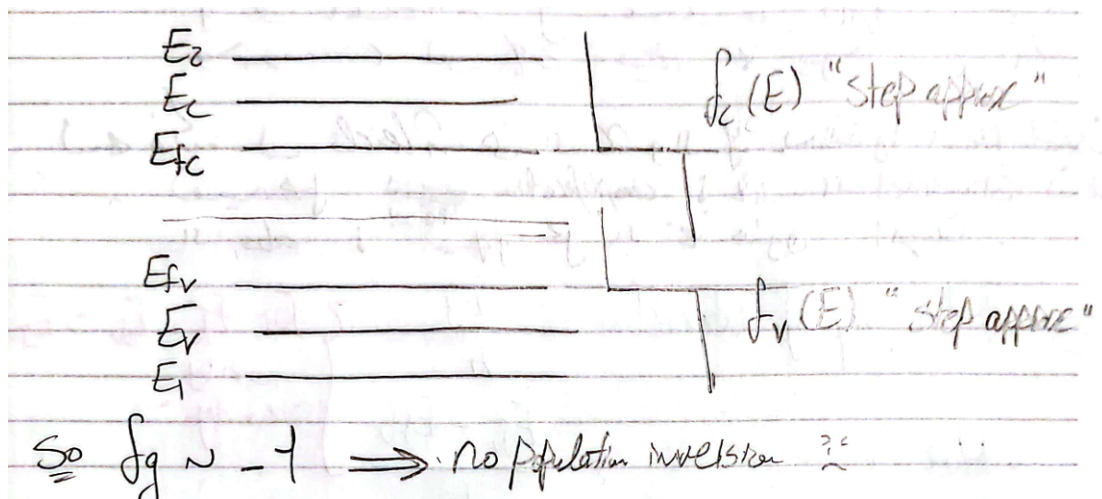 E₂
E_c
f_c (E) "step approx"
E_fc
E_fv
f_v (E) "step approx"
E_v
E₁
So f_g ~ -1 ⟹ no population inversion